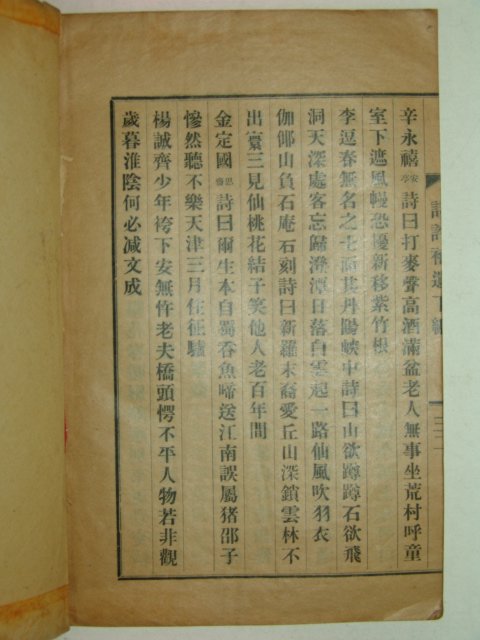 辛永禧安亭詩曰打麥聲高酒滿盆老人無事坐荒村呼童
室下遮風幔恐擾新移紫竹根
李逗春無名之士而其丹陽峽中詩曰山欲蹲蹲石欲飛
洞天深處客忘歸澄潭日落白雲起一路仙風吹羽衣
伽倻山負石庵石刻詩曰新羅末裔愛丘山深鎖雲林不
出寰三見仙桃花結子笑他人老百年間
金定國思齋詩曰爾生本自蜀吞魚啼送江南誤屬猪邵子
慘然聽不樂天津三月住征驢
楊誠齊少年袴下安無忤老夫橋頭愕不平人物若非觀
歲暮淮陰何必減文成